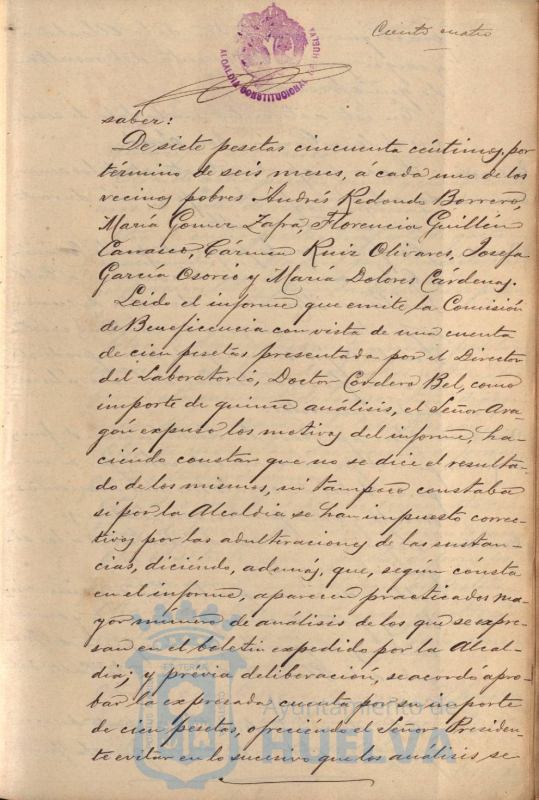 Ciento cuatro
ALCALDIA CONSTITUCIONAL DE HUELVA
saber:
De siete pesetas cincuenta céntimos, por
término de seis meses, á cada uno de los
vecinos pobres Andrés Redondo Borrero,
María Gomez Zafra, Florencia Guillén
Carrasco, Cármen Ruiz Olivares, Josefa
García Osorio y María Dolores Cárdenas.
Leido el informe que emite la Comisión
de Beneficencia con vista de una cuenta
de cien pesetas presentada por el Director
del Laboratorio, Doctor Cordero Bel, como
importe de quince análisis, el Señor Ara-
gón expuso los motivos del informe, ha-
ciéndo constar que no se dice el resulta-
do de los mismos, ni tampoco constaba
si por la Alcaldia se han impuesto correc-
tivos por las adulteraciones de las sustan-
cias, diciéndo, ademas, que, según consta
en el informe, aparecen practicados ma-
yor número de análisis de los que se expre-
san en el boletin expedido por la Alcal-
dia; y prévia deliberación, se acordó apro-
bar la expresada cuenta por su importe
de cien pesetas, ofreciéndo el Señor Presiden-
te evitar en lo sucesivo que los análisis se
Ayuntamiento de
HUELVA